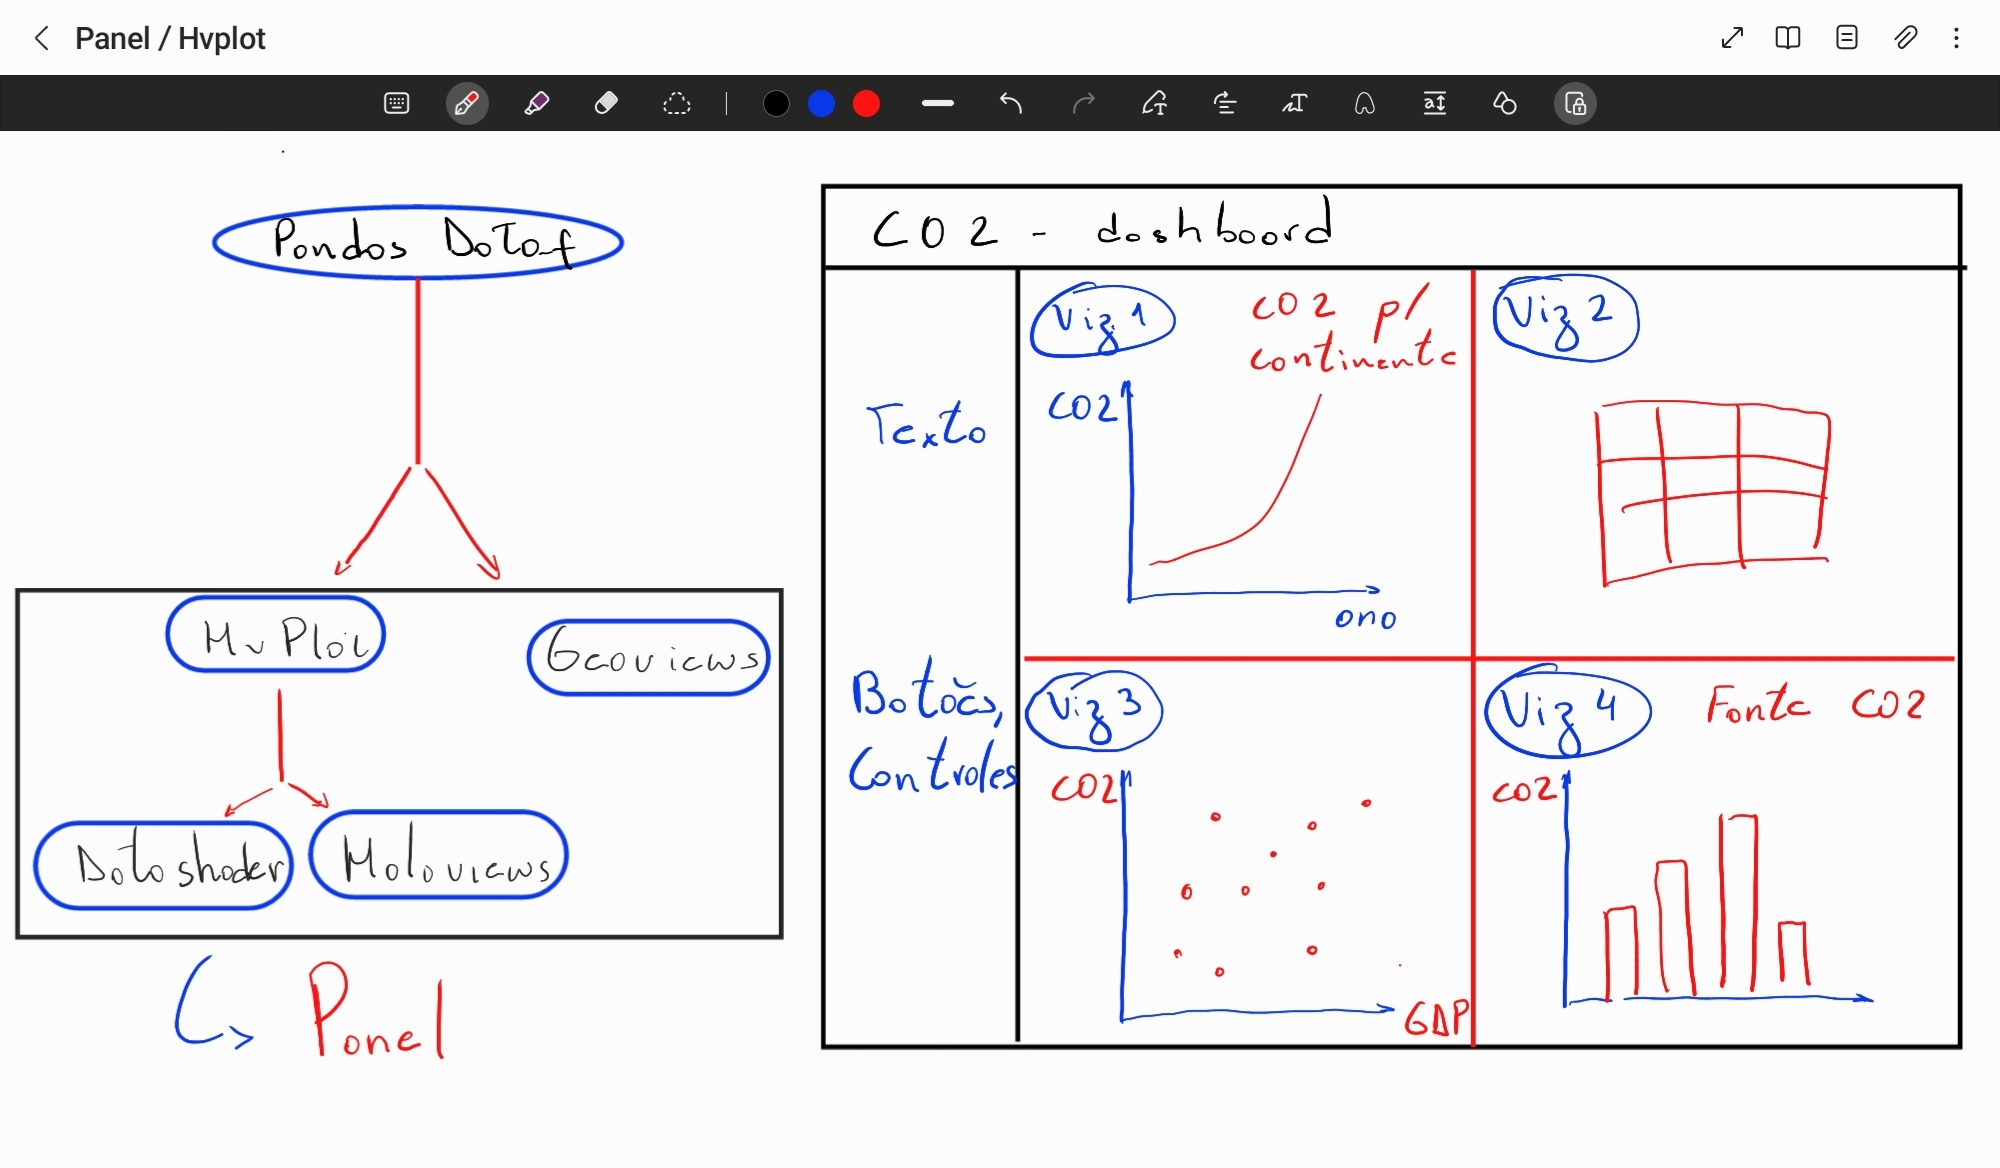 Panel / Hvplot
Pandas Dataf
HvPlot
Geoviews
Datashader
Holoviews
Panel
CO2 - dashboard
Texto
Botões,
Controles
Viz 1
CO2 p/
continente
CO2
ano
Viz 2
Viz 3
CO2
GDP
Viz 4
Fonte CO2
CO2